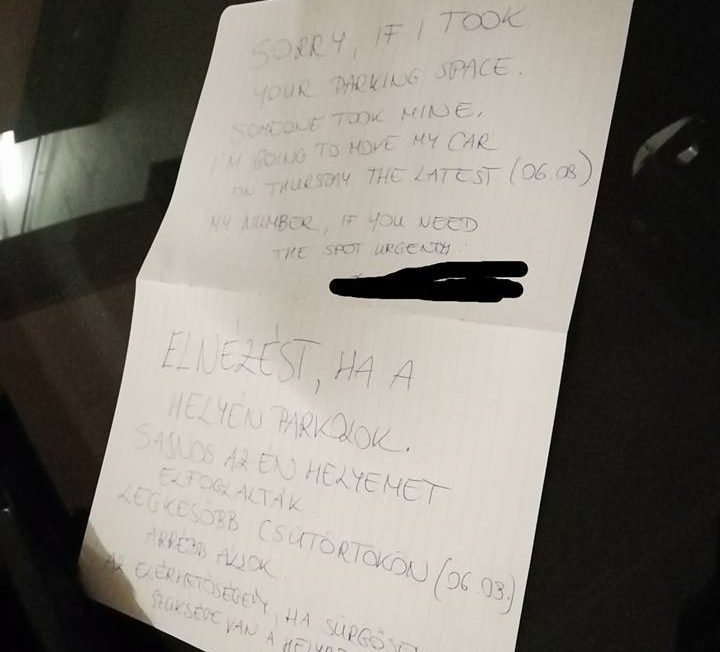 SORRY, IF I TOOK
YOUR PARKING SPACE.
SOMEONE TOOK MINE.
I'M GOING TO MOVE MY CAR
ON THURSDAY THE LATEST (06.03)
MY NUMBER, IF YOU NEED
THE SPOT URGENTLY:
ELNÉZÉST, HA A
HELYÉN PARKOLOK.
SAJNOS AZ ÉN HELYEMET
ELFOGLALTÁK.
LEGKÉSŐBB CSÜTÖRTÖKÖN (06.03.)
ARRÉBB ÁLLOK.
AZ ELÉRHETŐSÉGEM, HA SÜRGŐSEN
SZÜKSÉGE VAN A